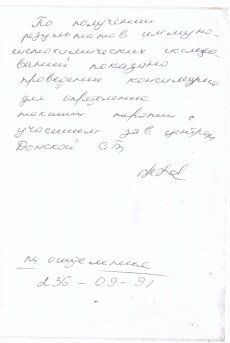 По получении
результатов иммуно-
гистохимических исследо-
ваний показано
проведение консилиума
для определения
тактики терапии с
участием зав. центром
Донской С.В.
отделения
236-09-91